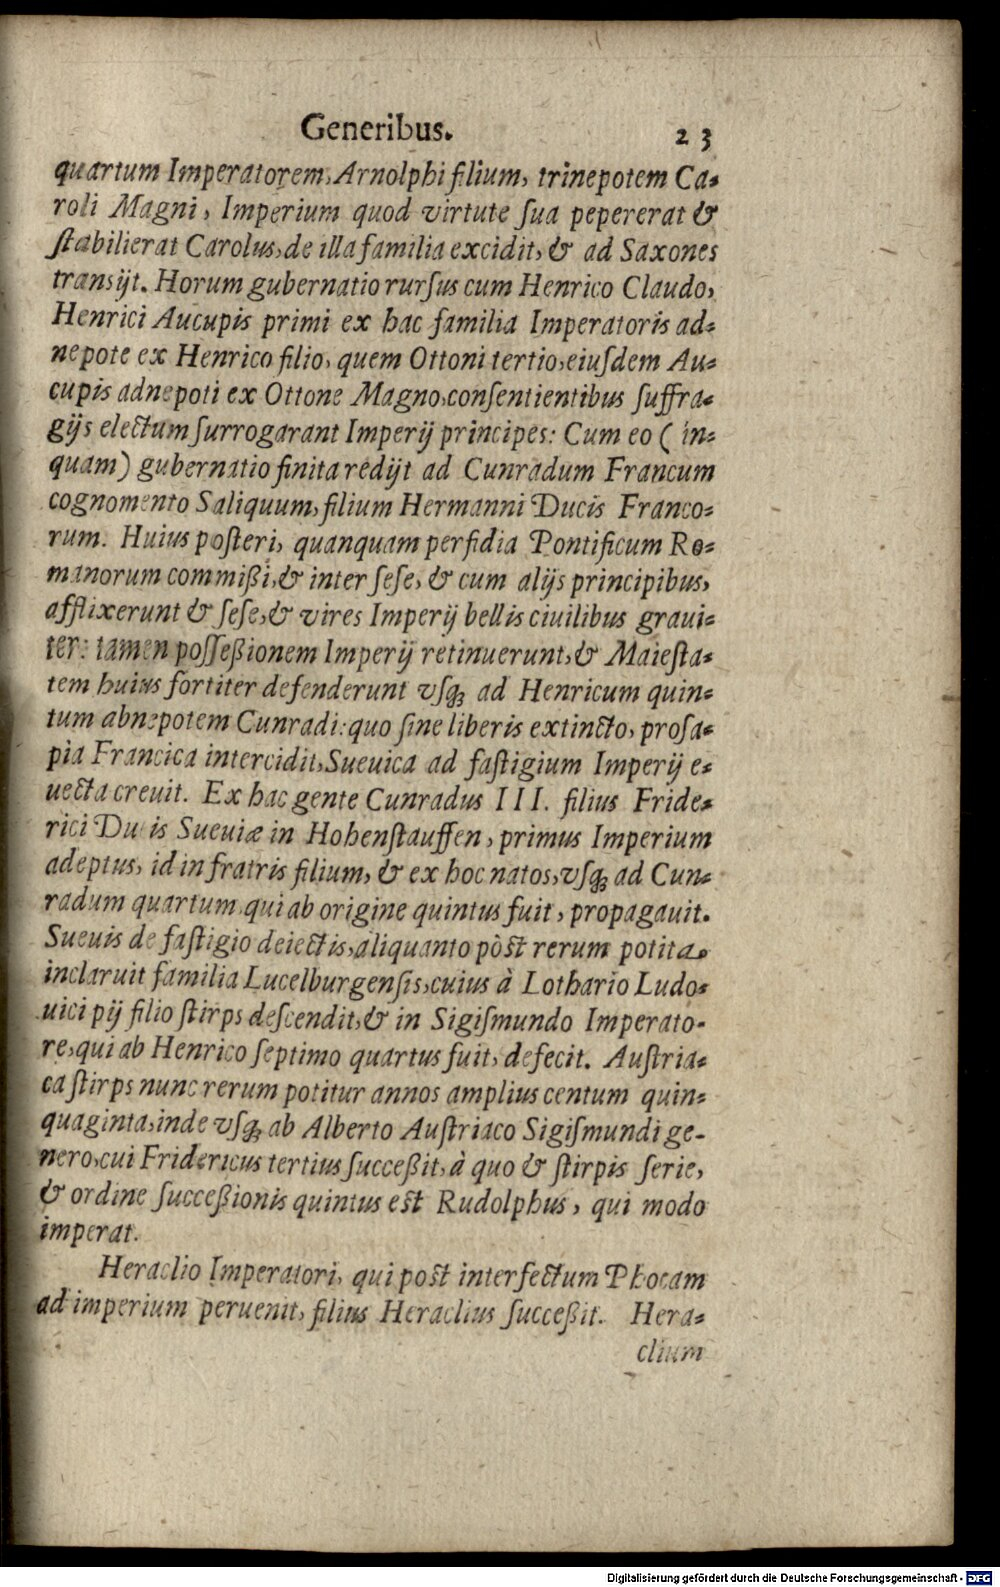 Generibus. 23
quartum Imperatorem, Arnolphi filium, trinepotem Ca-
roli Magni, Imperium quod virtute ſua pepererat &
ſtabilierat Carolus, de illa familia excidit, & ad Saxones
tranſijt. Horum gubernatio rurſus cum Henrico Claudo,
Henrici Aucupis primi ex hac familia Imperatoris ad-
nepote ex Henrico filio, quem Ottoni tertio, eiuſdem Au-
cupis adnepoti ex Ottone Magno, conſentientibus ſuffra-
gijs electum ſurrogarant Imperij principes: Cum eo ( in-
quam) gubernatio finita redijt ad Cunradum Francum
cognomento Saliquum, filium Hermanni Ducis Franco-
rum. Huius poſteri, quanquam perfidia Pontificum Ro-
manorum commißi, & inter ſeſe, & cum alijs principibus,
afflixerunt & ſeſe, & vires Imperij bellis ciuilibus graui-
ter: tamen poſſeßionem Imperij retinuerunt, & Maieſta-
tem huius fortiter defenderunt vſq; ad Henricum quin-
tum abnepotem Cunradi: quo ſine liberis extincto, proſa-
pia Francica intercidit, Sueuica ad faſtigium Imperij e-
uecta creuit. Ex hac gente Cunradus III. filius Fride-
rici Du is Sueuiæ in Hohenſtauffen, primus Imperium
adeptus, id in fratris filium, & ex hoc natos, vſq; ad Cun-
radum quartum, qui ab origine quintus fuit, propagauit.
Sueuis de faſtigio deiectis, aliquanto pòst rerum potita
inclaruit familia Lucelburgenſis, cuius à Lothario Ludo-
uici pij filio ſtirps deſcendit, & in Sigiſmundo Imperato-
re, qui ab Henrico ſeptimo quartus fuit, defecit. Auſtria-
ca ſtirps nunc rerum potitur annos amplius centum quin-
quaginta, inde vſq; ab Alberto Auſtriaco Sigiſmundi ge-
nero, cui Fridericus tertius ſucceßit, à quo & ſtirpis ſerie,
& ordine ſucceßionis quintus est Rudolphus, qui modo
imperat.
Heraclio Imperatori, qui post interfectum Phocam
ad imperium peruenit, filius Heraclius ſucceßit. Hera-
clium
Digitalisierung gefördert durch die Deutsche Forschungsgemeinschaft - DFG